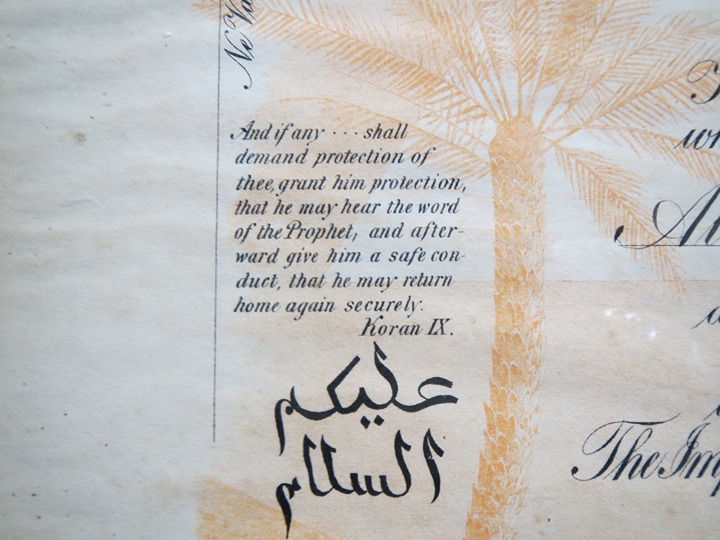 And if any · · · shall
demand protection of
thee, grant him protection,
that he may hear the word
of the Prophet, and after-
ward give him a safe con-
duct, that he may return
home again securely.
Koran IX.
عليكم
السلام
The